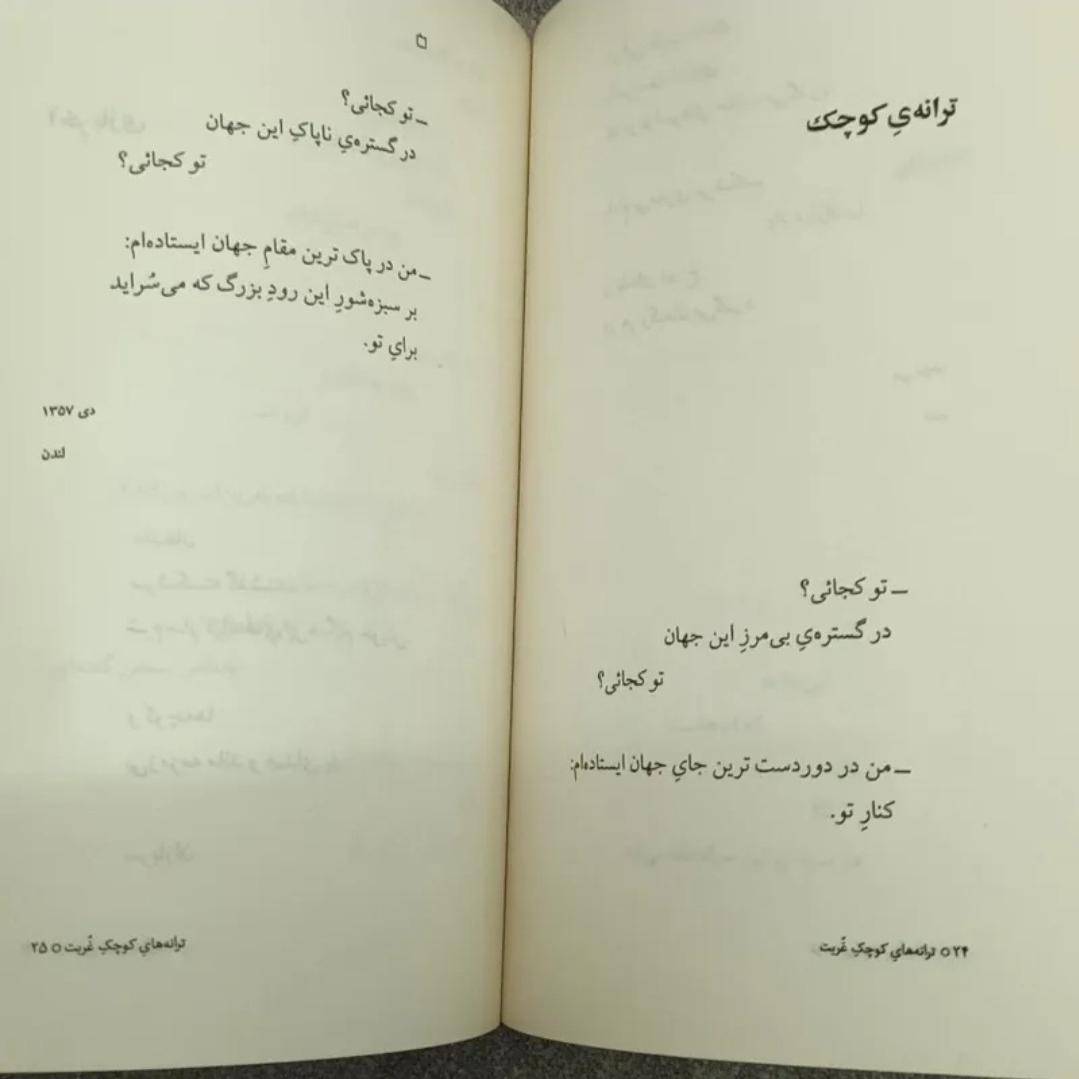 ترانه‌یِ کوچک
ـ تو کجائی؟
در گستره‌یِ بی‌مرزِ این جهان
تو کجائی؟
ـ من در دوردست ترین جایِ جهان ایستاده‌ام:
کنارِ تو.
۲۴ ○ ترانه‌هایِ کوچکِ غُربت
ـ تو کجائی؟
در گستره‌یِ ناپاکِ این جهان
تو کجائی؟
ـ من در پاک ترین مقامِ جهان ایستاده‌ام:
بر سبزه‌شورِ این رودِ بزرگ که می‌سُراید
برایِ تو.
دی ۱۳۵۷
لندن
ترانه‌هایِ کوچکِ غُربت ○ ۲۵